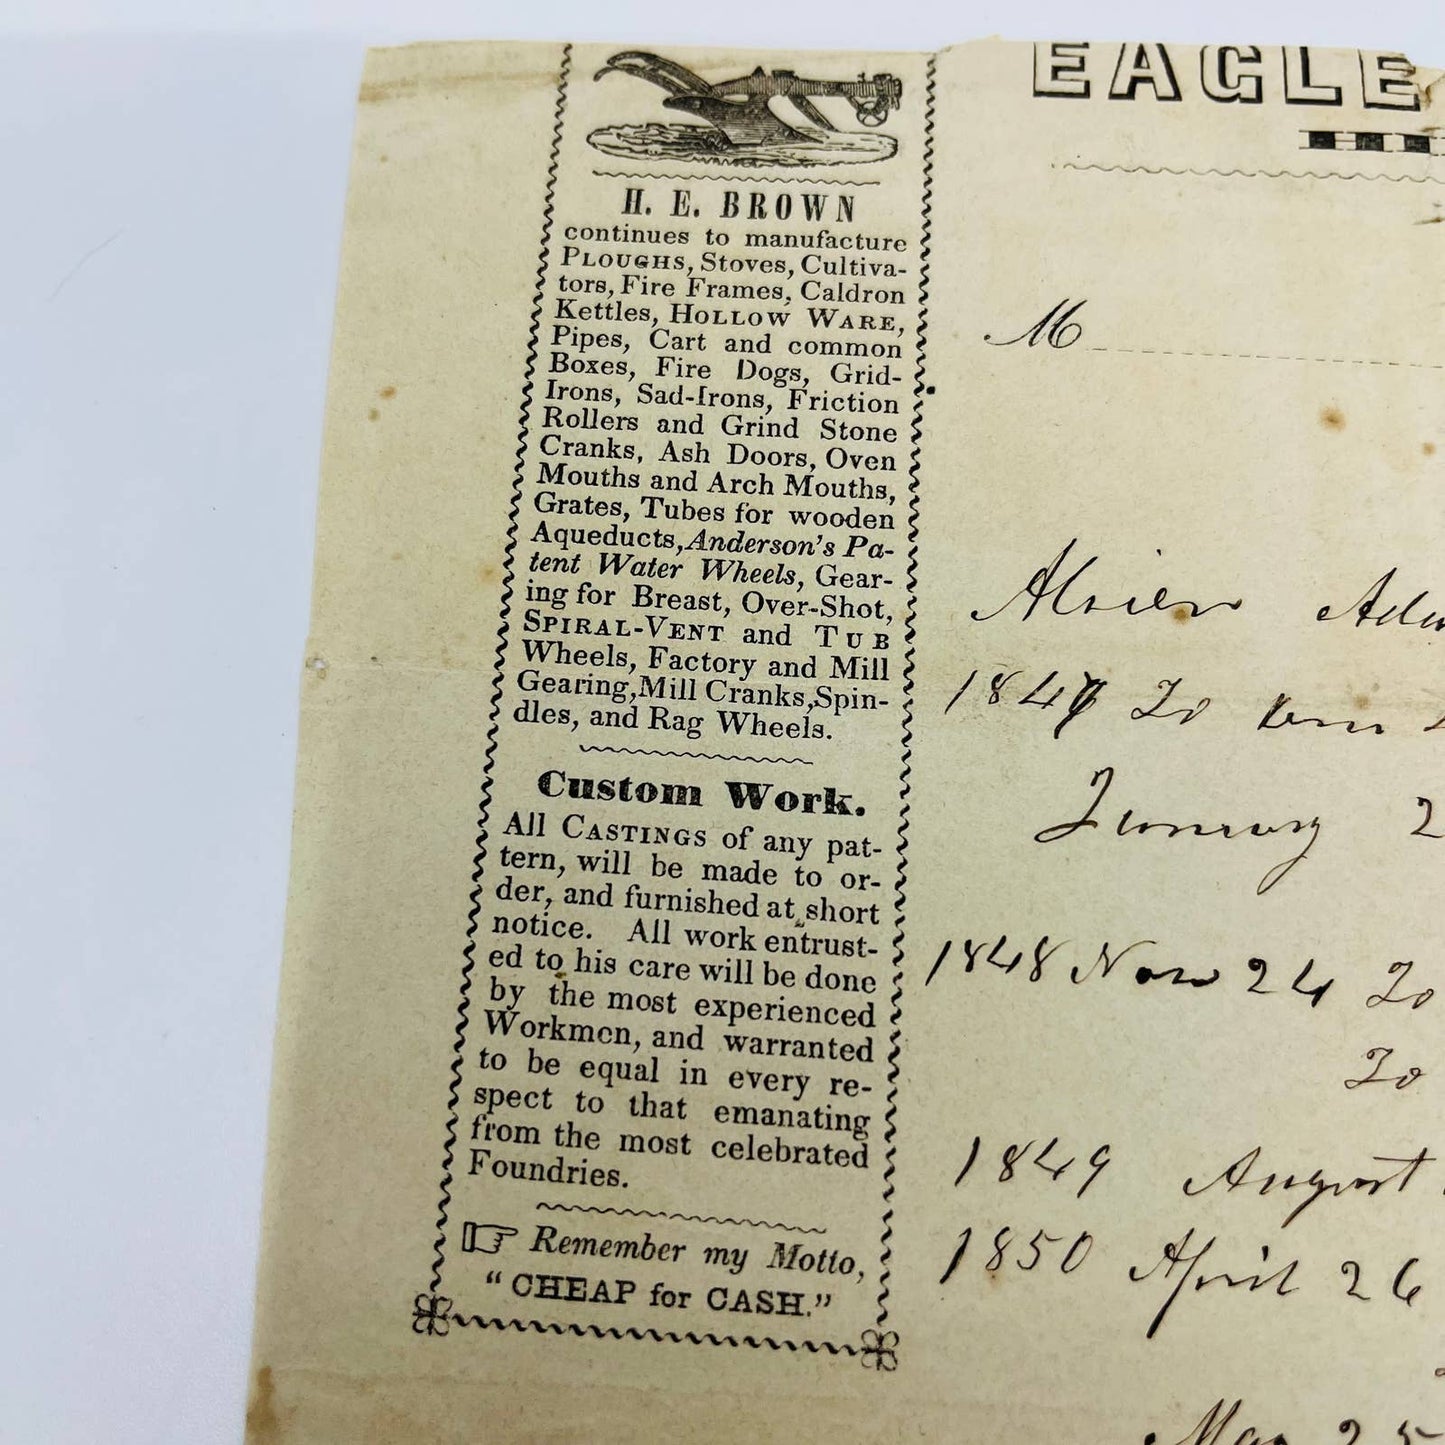 EAGLE
H. E. BROWN
continues to manufacture
PLOUGHS, Stoves, Cultiva-
tors, Fire Frames, Caldron
Kettles, HOLLOW WARE,
Pipes, Cart and common
Boxes, Fire Dogs, Grid-
Irons, Sad-Irons, Friction
Rollers and Grind Stone
Cranks, Ash Doors, Oven
Mouths and Arch Mouths,
Grates, Tubes for wooden
Aqueducts, Anderson's Pa-
tent Water Wheels, Gear-
ing for Breast, Over-Shot,
SPIRAL-VENT and TUB
Wheels, Factory and Mill
Gearing, Mill Cranks, Spin-
dles, and Rag Wheels.
Custom Work.
All CASTINGS of any pat-
tern, will be made to or-
der, and furnished at short
notice. All work entrust-
ed to his care will be done
by the most experienced
Workmen, and warranted
to be equal in every re-
spect to that emanating
from the most celebrated
Foundries.
☞ Remember my Motto,
"CHEAP for CASH."
M
1847 To
January 2
1848 Nov 24 To
To
1849 August
1850 April 26
May 25